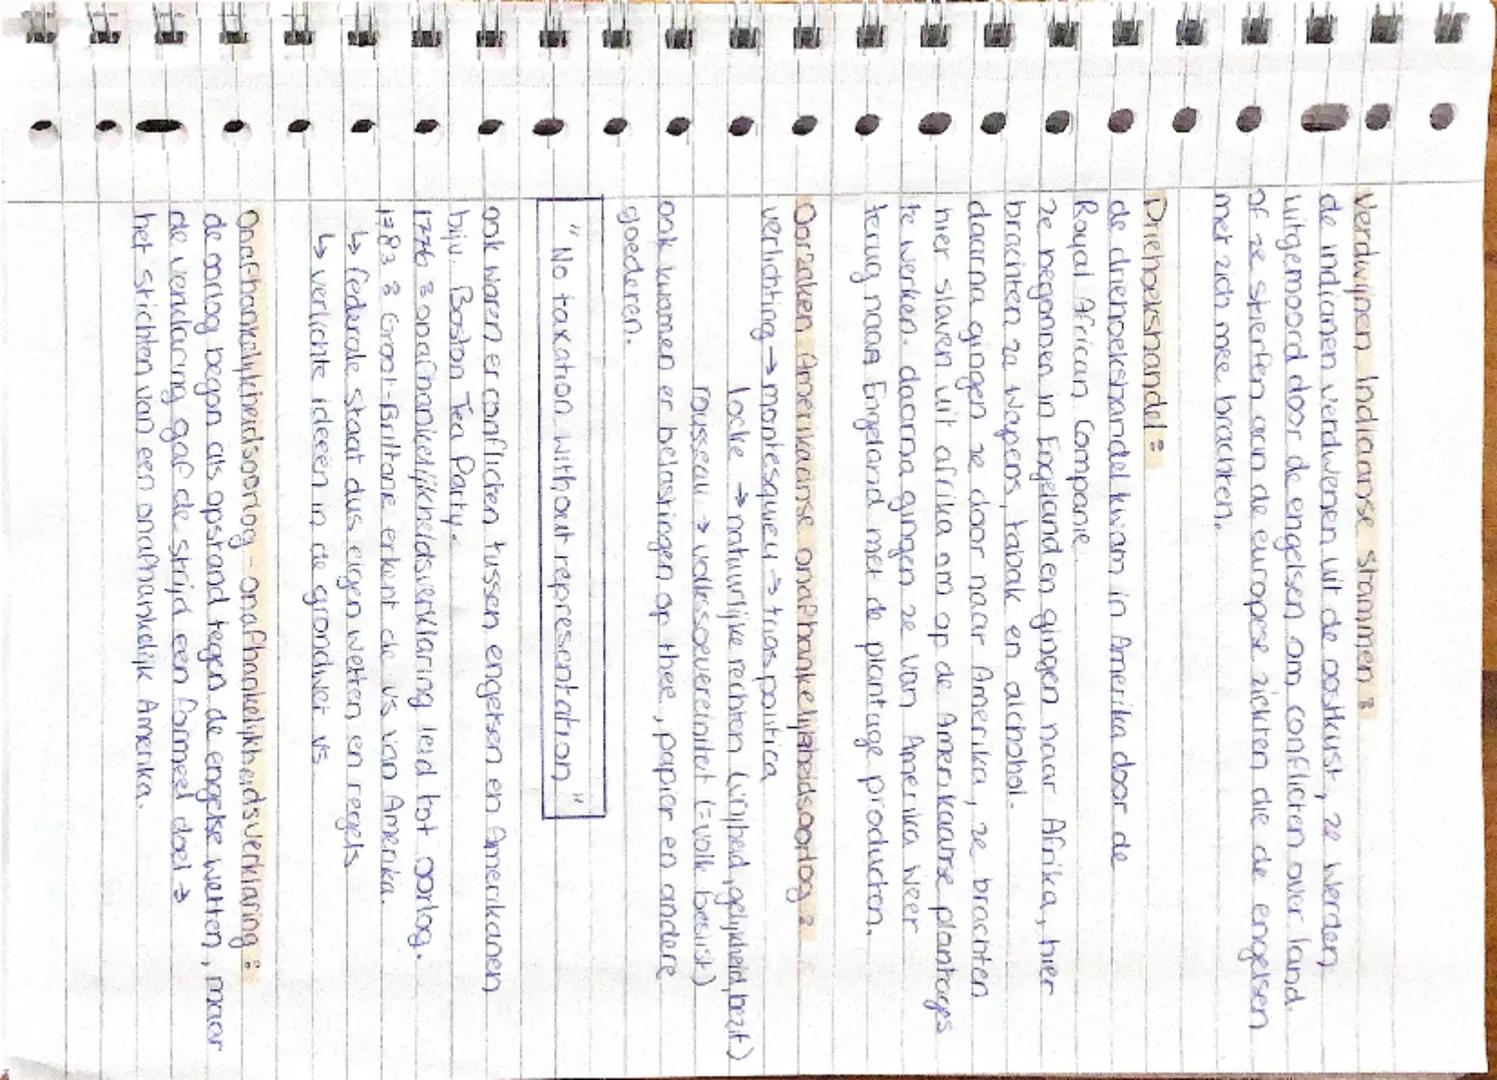 Verdwijnen Indiaanse stammen :
de indianen verdwenen uit de oostkust, ze werden
uitgemoord door de engelsen om conflicten over land.
of ze stierfen aan de europese ziekten die de engelsen
met zich mee brachten.
Driehoekshandel :
de driehoekshandel kwam in Amerika door de
Royal African Companie
ze begonnen in Engeland en gingen naar Afrika, hier
brachten ze wapens, tabak en alchohol.
daarna gingen ze door naar Amerika, ze brachten
hier slaven uit afrika om op de Amerikaanse plantages
te werken. daarna gingen ze van Amerika weer
terug naar Engeland met de plantage producten.
Oorzaken Amerikaanse onafhankelijkheidsoorlog :
verlichting → montesquieu → trias politica
locke → natuurlijke rechten (vrijheid, gelijkheid, bezit)
rousseau → volkssoevereiniteit (= volk beslist)
ook kwamen er belastingen op thee, papier en andere
goederen.
" No taxation without representation "
ook waren er conflicten tussen engelsen en Amerikanen
bijv. Boston Tea Party.
1776 : onafhankelijkheidsverklaring leid tot oorlog.
1783 : Groot-Brittanie erkent de VS van Amerika.
↳ federale staat dus eigen wetten en regels
↳ verlichte ideeën in de grondwet vs.
Onafhankelijkheidsoorlog - onafhankelijkheidsverklaring :
de oorlog begon als opstand tegen de engelse wetten, maar
de verklaring gaf de strijd een formeel doel →
het stichten van een onafhankelijk Amerika.